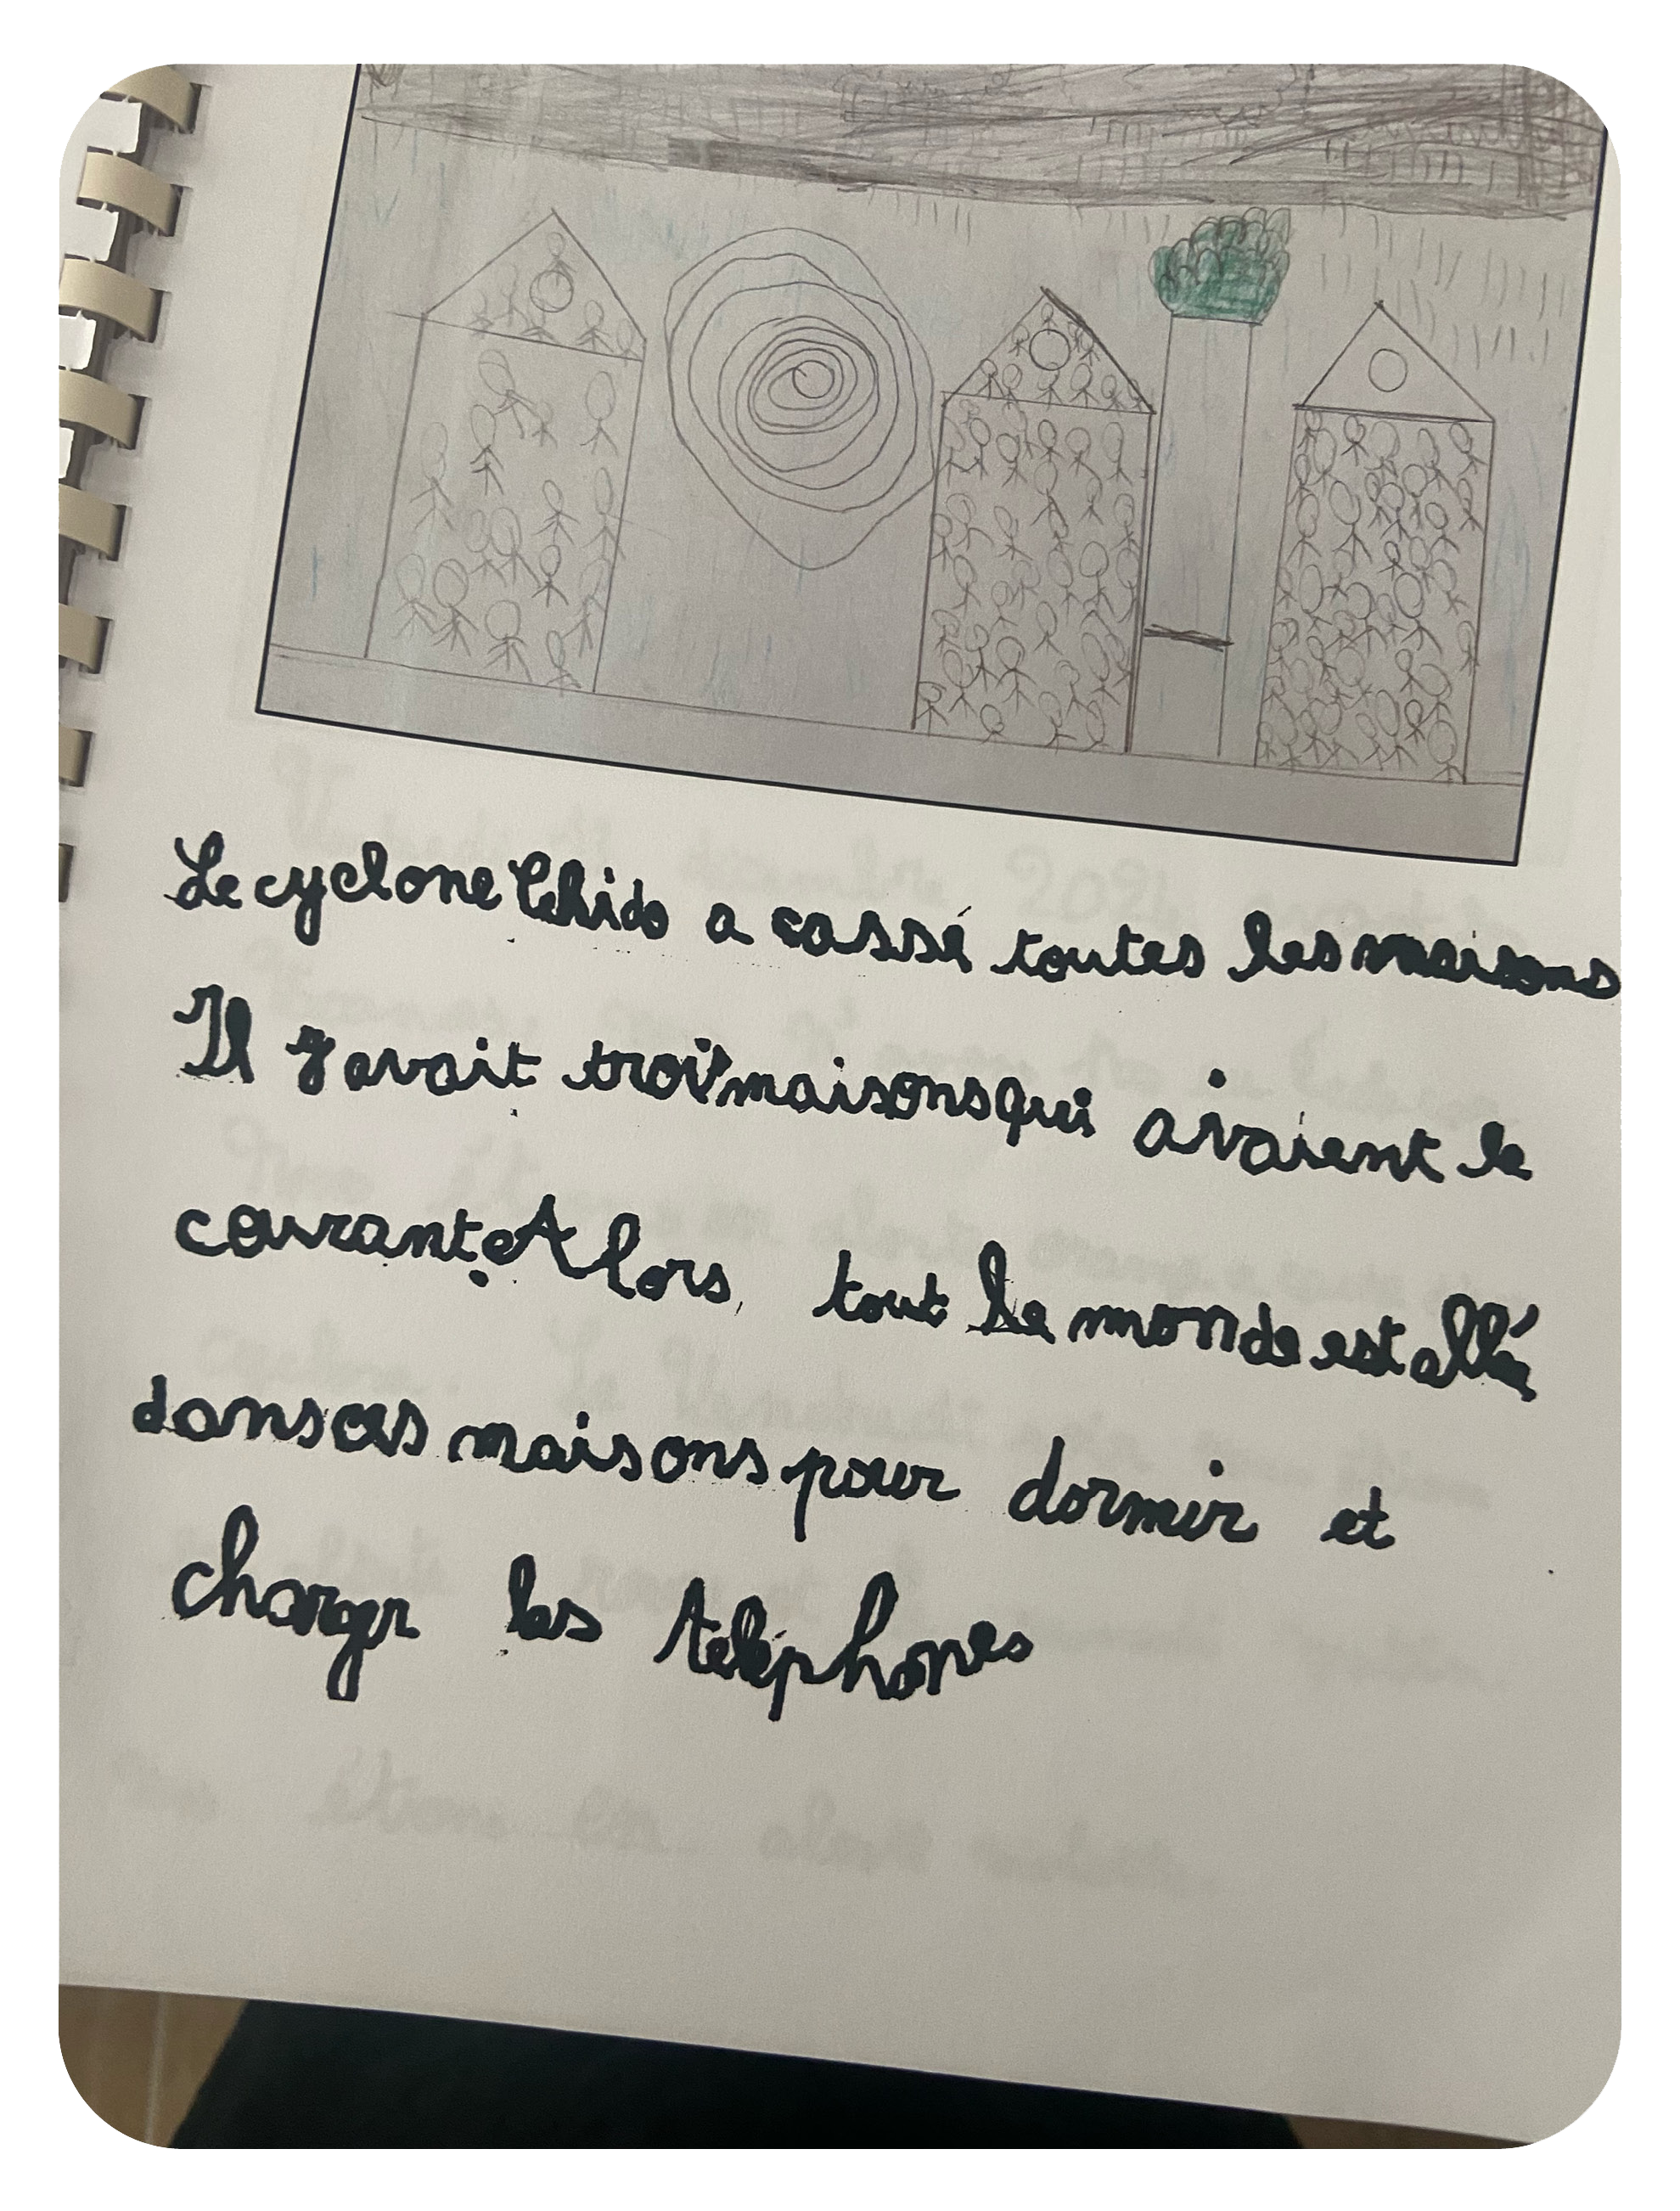 Le cyclone Chido a cassé toutes les maisons
Il y avait trois maisons qui avaient le
courant. Alors, tout le monde est allé
dans ces maisons pour dormir et
charger les téléphones